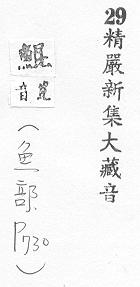 29精嚴新集大藏音
音
(鱼部 P730)